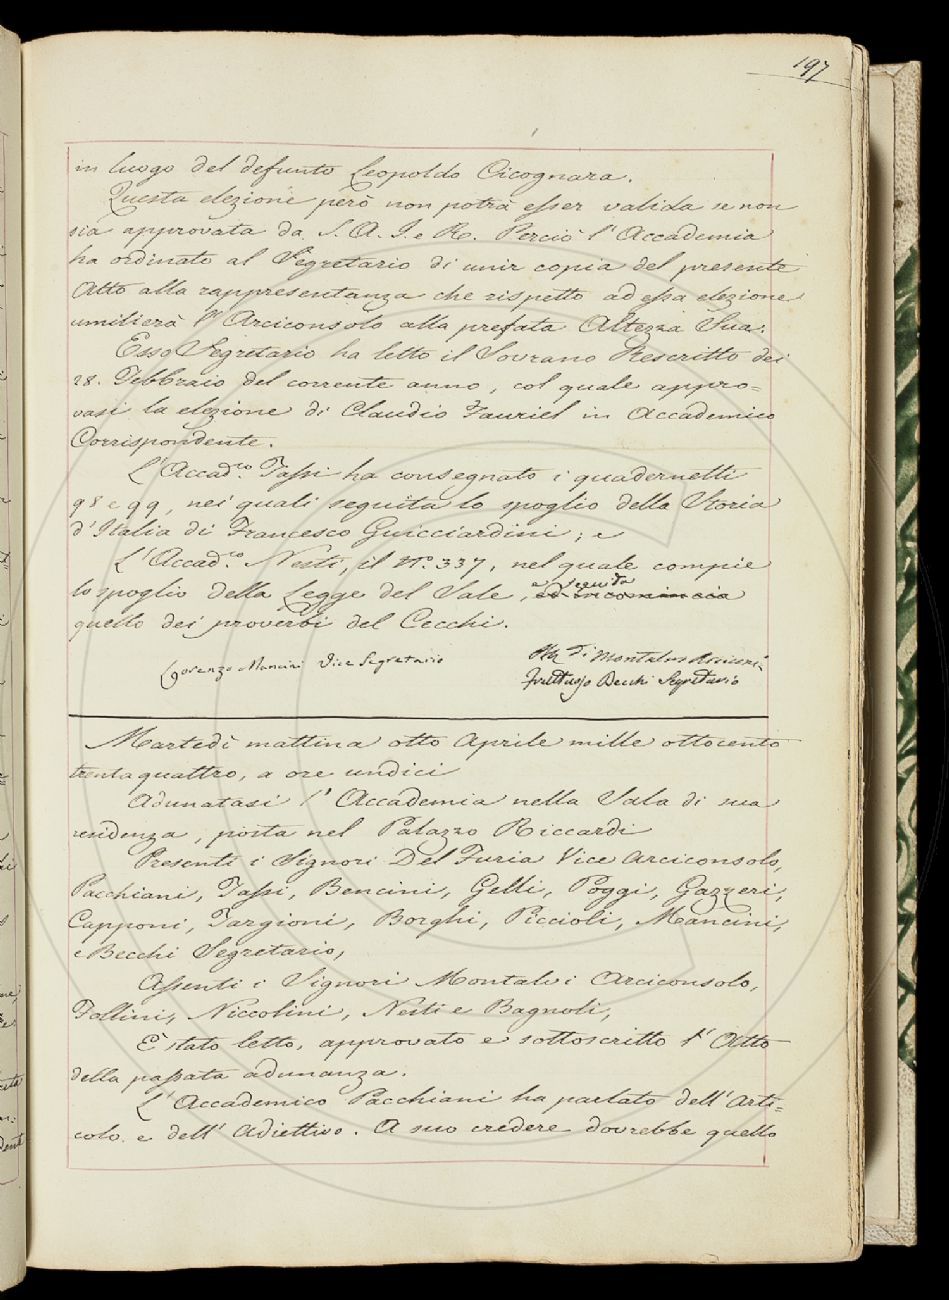 197
in luogo del defunto Leopoldo Cicognara.
Questa elezione però non potrà esser valida se non
sia approvata da S. A. I. e R. Perciò l'Accademia
ha ordinato al Segretario di unir copia del presente
Atto alla rappresentanza che rispetto ad essa elezione
umilierà l'Arciconsolo alla prefata Altezza Sua.
Esso Segretario ha letto il Sovrano Rescritto dei
28. Febbraio del corrente anno, col quale appro=
vasi la elezione di Claudio Fauriel in Accademico
Corrispondente.
L'Accad.co Tassi ha consegnato i quadernetti
98 e 99, nei quali seguita lo spoglio della Storia
d'Italia di Francesco Guicciardini; e
L'Accad.co Nesti, il N.o 337, nel quale compie
lo spoglio della Legge del Sale, ed incomincia
e seguita
quello dei proverbi del Cecchi.
Lorenzo Mancini Vice Segretario
di Montalvo
Fruttuoso Becchi Segretario
Martedì mattina otto Aprile mille ottocento
trenta quattro, a ore undici
Adunatasi l'Accademia nella Sala di sua
residenza, posta nel Palazzo Riccardi
Presenti i Signori Del Furia Vice Arciconsolo,
Pacchiani, Tassi, Bencini, Gelli, Poggi, Gazzeri,
Capponi, Targioni, Borghi, Piccioli, Mancini,
e Becchi Segretario,
Assenti i Signori Montalvi Arciconsolo,
Follini, Niccolini, Nesti e Bagnoli,
È stato letto, approvato e sottoscritto l'Atto
della passata adunanza.
L'Accademico Pacchiani ha parlato dell'Arti=
colo e dell'Adiettivo. A suo credere dovrebbe quello